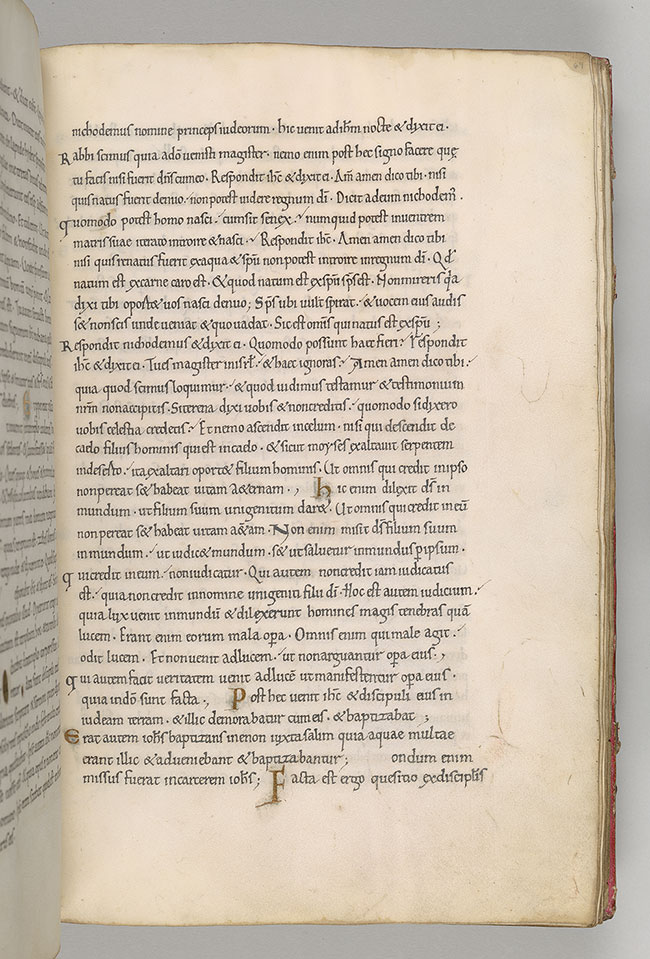 nichodemus nomine princeps iudeorum · hic venit ad ihm nocte & dixit ei ·
Rabbi scimus quia a dō venisti magister · nemo enim post hec signo facere quę
tu facis nisi fuerit dn̄s cum eo · Respondit ihc & dixit ei · Am̄ amen dico tibi · nisi
quis natus fuerit denuo · non potest videre regnum dī · Dicit ad eum nichodem̄ ·
quomodo potest homo nasci · cum sit senex · numquid potest in ventrem
matris suae iterato introire & nasci · Respondit ihc · Amen amen dico tibi
nisi quis renatus fuerit ex aqua & spū non potest introire in regnum dī · Qd
natum est ex carne caro est · & quod natum est ex spū sps est · Non mireris qa
dixi tibi oport& vos nasci denuo ; Sps ubi vult spirat · & vocem eius audis
s& non scis unde veniat & quo vadat · Sic est omnis qui natus est ex spū ;
Respondit nichodemus & dixit ei · Quomodo possunt haec fieri · Respondit
ihc & dixit ei · Tu es magister in isrl · & haec ignoras · Amen amen dico tibi ·
quia quod scimus loquimur · & quod vidimus testamur & testimonium
nrm̄ non accipitis · Si terena dixi vobis & non creditis · quomodo si dixero
vobis celestia credetis · Et nemo ascendit in celum · nisi qui descendit de
caelo filius hominis qui est in caelo · & sicut moyses exaltavit serpentem
in deserto · ita exaltari oport& filium hominis · Ut omnis qui credit in ipso
non pereat s& habeat vitam a&ernam · , hic enim dilexit ds̄ in
mundum · ut filium suum unigenitum dar& · Ut omnis qui credit in eū
non pereat s& habeat vitam a&am · Non enim misit ds̄ filium suum
in mundum · ut iudic& mundum · s& ut salvetur inmundus p ipsum ·
qui credit in eum · non iudicatur · Qui autem non credit iam iudicatus
est · quia non credit in nomine unigeniti filii dī · Hoc est autem iudicium ·
quia lux venit in mundū & dilexerunt homines magis tenebras quā
lucem · Erant enim eorum mala opa · Omnis enim qui male agit ·
odit lucem · Et non venit ad lucem · ut non arguantur opa eius · ,
qui autem facit veritatem venit ad lucē ut manifestentur opa eius ·
quia in dō sunt facta · , Post hec venit ihc & discipuli eius in
iudeam terram · & illic demorabatur cum eis · & baptizabat ;
Erat autem iohs baptizans in enon iuxta salim quia aquae multae
erant illic & adveniebant & baptizabantur ; ondum enim
missus fuerat in carcerem iohs ; Facta est ergo questio ex discipl̄is